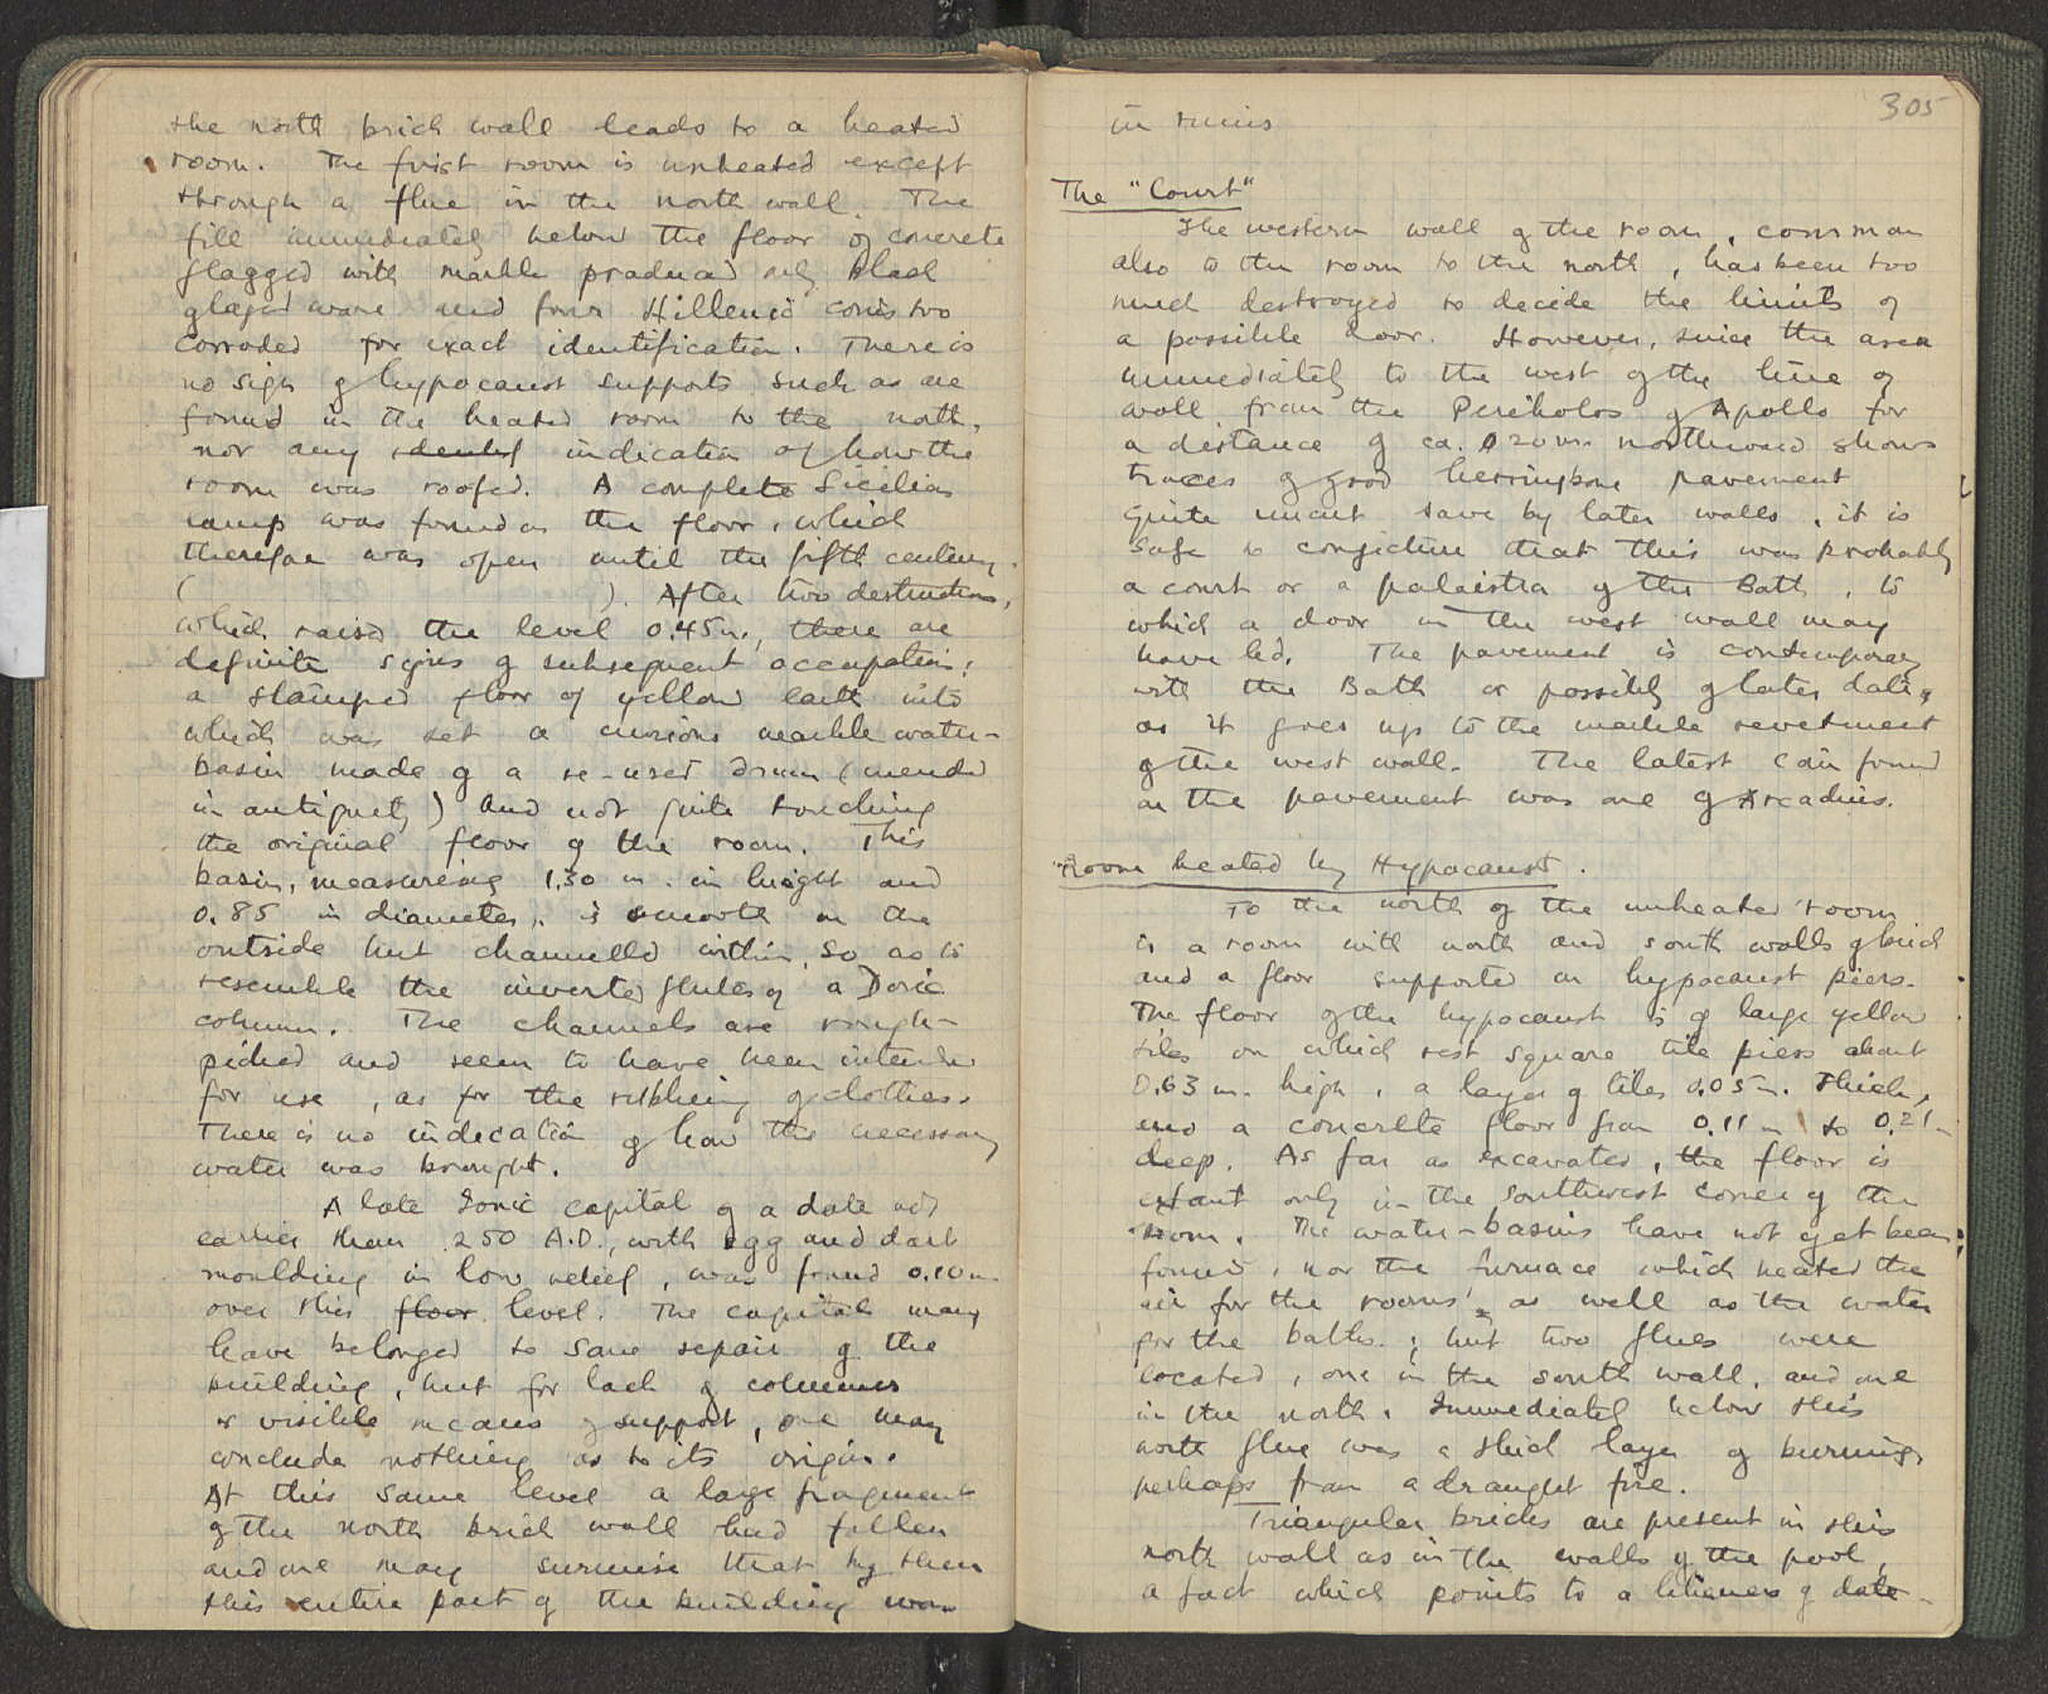 the north brick wall leads to a heated
room. The first room is unheated except
through a flue in the north wall. The
fill immediately below the floor of concrete
flagged with marble produced only black
glazed ware and four Hellenic coins too
corroded for exact identification. There is
no sign of hypocaust supports such as are
found in the heated room to the north,
nor any indication of how the
room was roofed. A complete Sicilian
lamp was found on the floor, which
therefore was open until the fifth century.
( ). After two destructions,
which raised the level 0.45 m., there are
definite signs of subsequent occupation:
a stamped floor of yellow earth into
which was set a curious marble water-
basin made of a re-used drum (mended
in antiquity) and not quite touching
the original floor of the room. This
basin, measuring 1.30 m. in height and
0.85 in diameter, is smooth on the
outside but channelled within, so as to
resemble the inverted flutes of a Doric
column. The channels are rough-
picked and seem to have been intended
for use, as for the rubbing of clothes.
There is no indication of how the necessary
water was brought.
A late Ionic capital of a date not
earlier than 250 A.D., with egg and dart
moulding in low relief, was found 0.10 m.
over this floor level. The capital may
have belonged to some repair of the
building, but for lack of columns
or visible means of support, one may
conclude nothing as to its origin.
At this same level a large fragment
of the north brick wall had fallen
and one may surmise that by then
this entire part of the building was
305
in ruins
The "Court"
The western wall of the room, common
also to the room to the north, has been too
much destroyed to decide the limits of
a possible door. However, since the area
immediately to the west of the line of
wall from the Peribolos of Apollo for
a distance of ca. 20 m. northward shows
traces of good herringbone pavement
quite uncut save by later walls, it is
safe to conjecture that this was probably
a court or a palaistra of the Bath, to
which a door in the west wall may
have led. The pavement is contemporary
with the Bath or possibly of later date,
as it goes up to the marble revetment
of the west wall. The latest coin found
on the pavement was one of Arcadius.
Room heated by Hypocaust.
To the north of the unheated room
is a room with north and south walls of brick
and a floor supported on hypocaust piers.
The floor of the hypocaust is of large yellow
tiles on which rest square tile piers about
0.63 m. high, a layer of tiles 0.05 m. thick,
and a concrete floor from 0.11 m to 0.21 m
deep. As far as excavated, the floor is
extant only in the southwest corner of the
room. The water-basins have not yet been
found, nor the furnace which heated the
air for the rooms as well as the water
for the baths; but two flues were
located, one in the south wall, and one
in the north. Immediately below this
north flue was a thick layer of burning,
perhaps from a draught fire.
Triangular bricks are present in this
north wall as in the walls of the pool,
a fact which points to a likeness of date